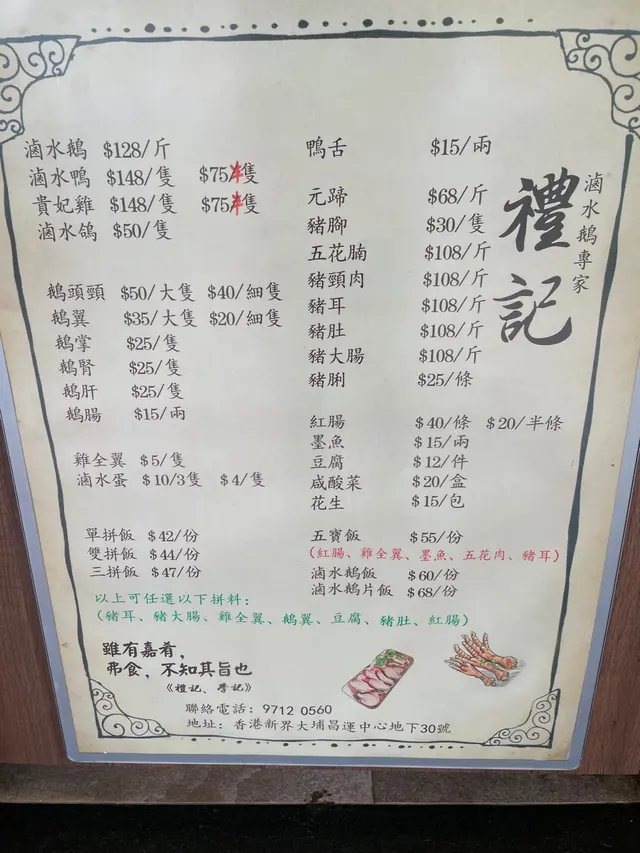 滷水鵝 $128/斤
滷水鴨 $148/隻 $75/半隻
貴妃雞 $148/隻 $75/半隻
滷水鴿 $50/隻
鵝頭頸 $50/大隻 $40/細隻
鵝翼 $35/大隻 $20/細隻
鵝掌 $25/隻
鵝腎 $25/隻
鵝肝 $25/隻
鵝腸 $15/兩
雞全翼 $5/隻
滷水蛋 $10/3隻 $4/隻
單拼飯 $42/份
雙拼飯 $44/份
三拼飯 $47/份
以上可任選以下拼料:
(豬耳、豬大腸、雞全翼、鵝翼、豆腐、豬肚、紅腸)
鴨舌 $15/兩
元蹄 $68/斤
豬腳 $30/隻
五花腩 $108/斤
豬頸肉 $108/斤
豬耳 $108/斤
豬肚 $108/斤
豬大腸 $108/斤
豬脷 $25/條
紅腸 $40/條 $20/半條
墨魚 $15/兩
豆腐 $12/件
咸酸菜 $20/盒
花生 $15/包
五寶飯 $55/份
(紅腸、雞全翼、墨魚、五花肉、豬耳)
滷水鵝飯 $60/份
滷水鵝片飯 $68/份
滷水鵝專家
禮記
雖有嘉肴,
弗食,不知其旨也
《禮記、學記》
聯絡電話: 9712 0560
地址: 香港新界大埔昌運中心地下30號